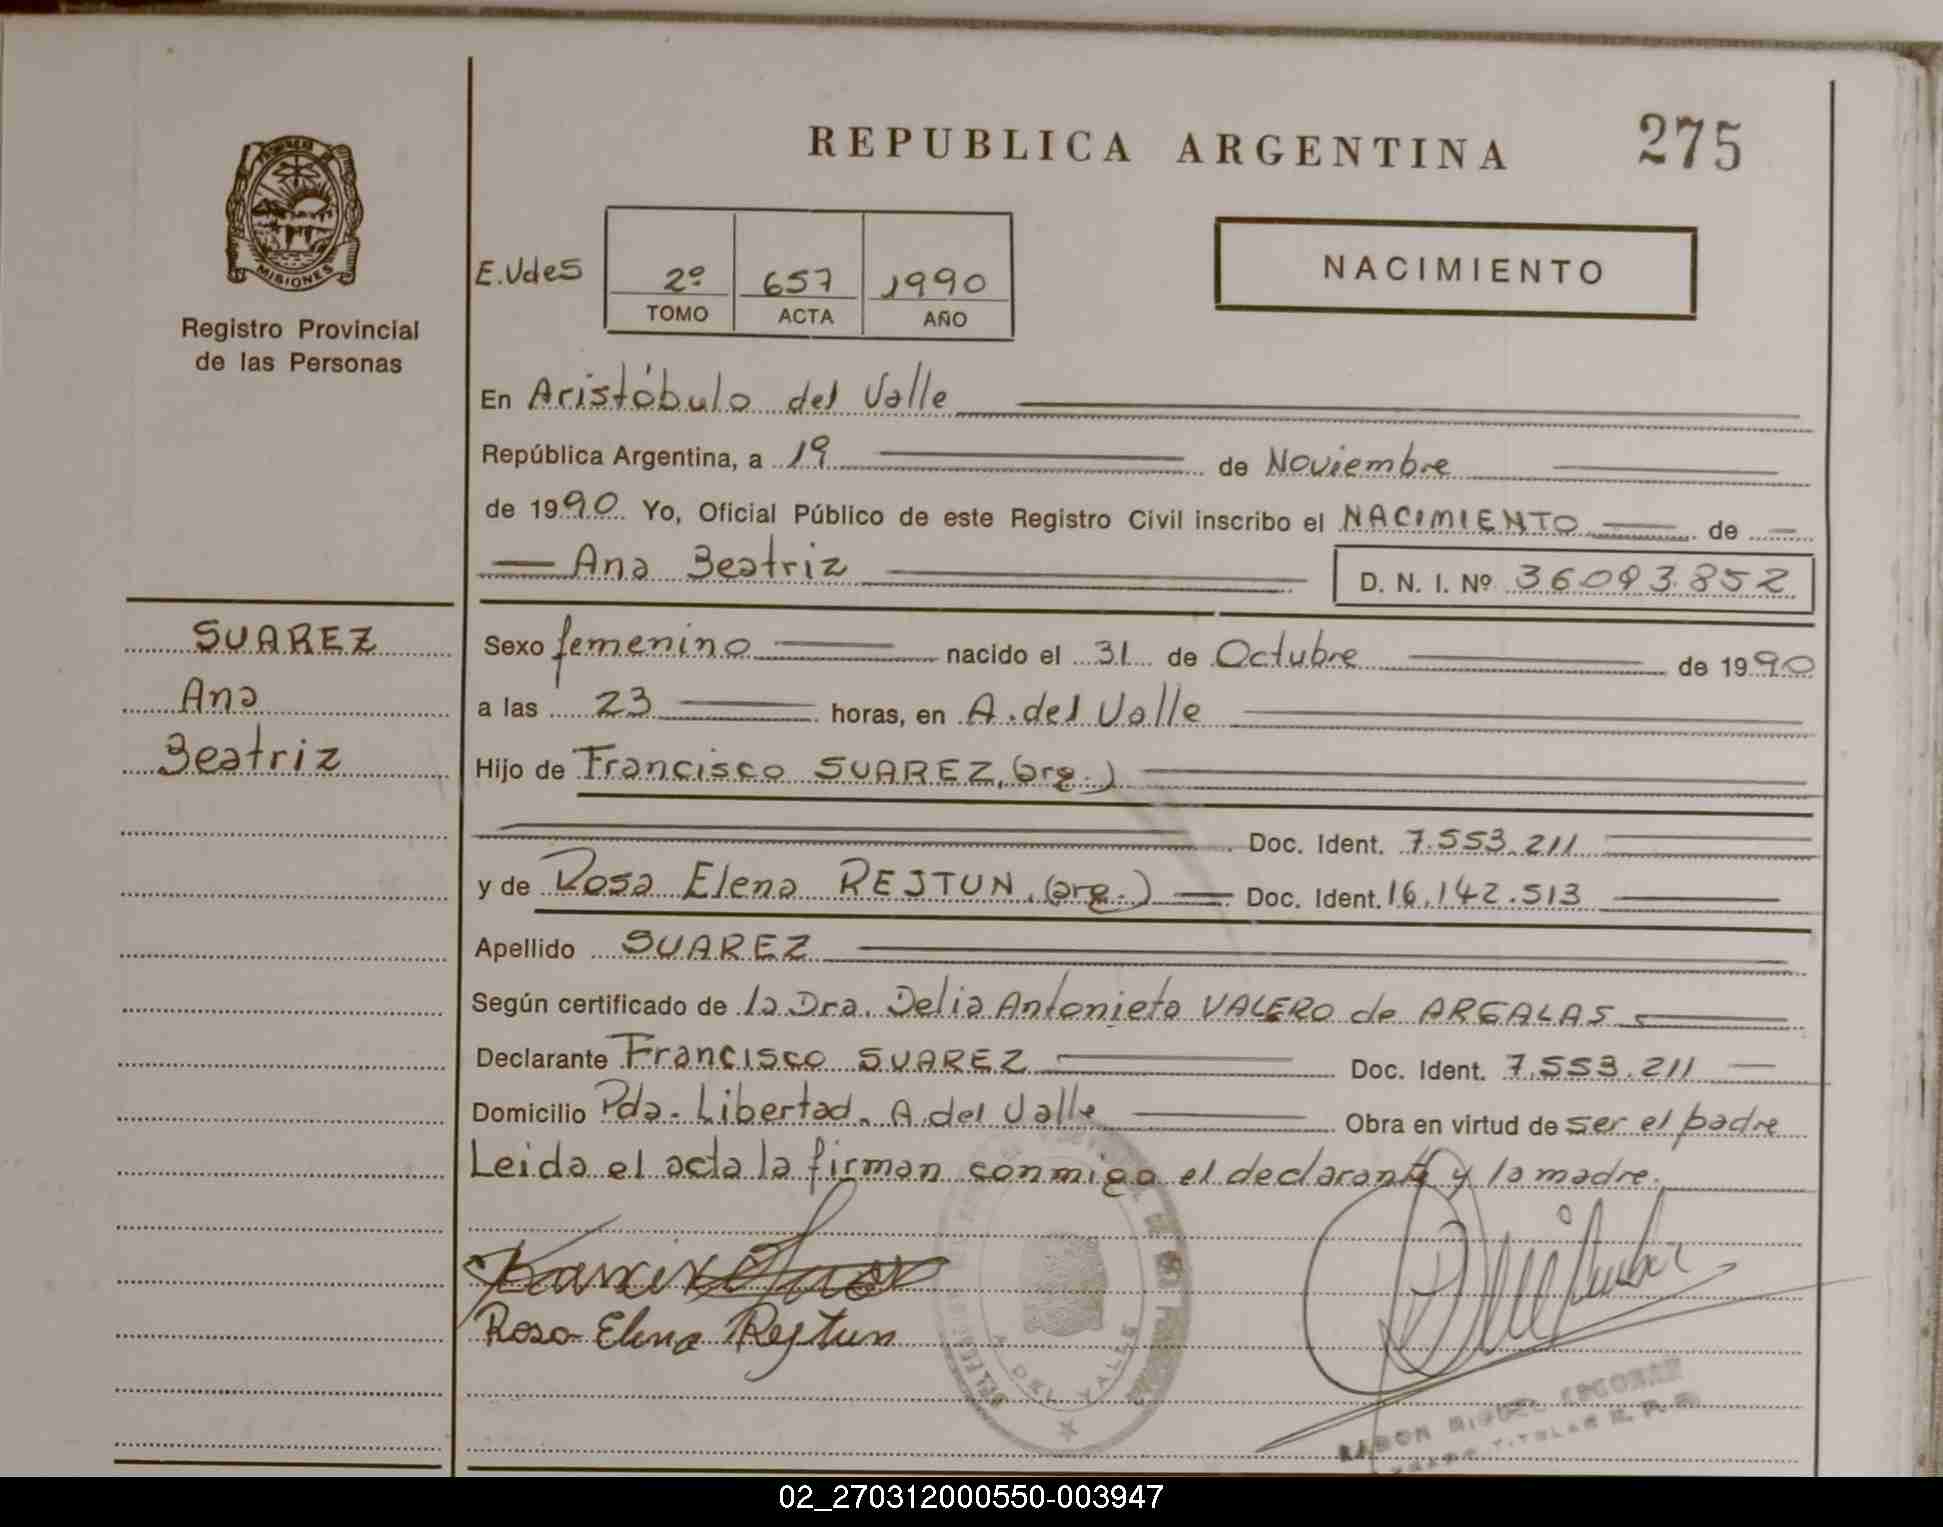 REPUBLICA ARGENTINA
275
PROVINCIA DE
MISIONES
Registro Provincial
de las Personas
E.Vdes
2º 657 1990
TOMO ACTA AÑO
NACIMIENTO
En Aristóbulo del Valle
República Argentina, a 19 de Noviembre
de 1990 Yo, Oficial Público de este Registro Civil inscribo el NACIMIENTO de
Ana Beatriz
D. N. I. Nº 36093.852
SUAREZ
Ana
Beatriz
Sexo femenino nacido el 31 de Octubre de 1990
a las 23 horas, en A. del Valle
Hijo de Francisco SUAREZ, (arg.)
Doc. Ident. 7.553.211
y de Rosa Elena REJTUN, (arg.) Doc. Ident. 16.142.513
Apellido SUAREZ
Según certificado de la Dra. Delia Antonieta VALERO de ARGALAS
Declarante Francisco SUAREZ Doc. Ident. 7.553.211
Domicilio Pda. Libertad. A. del Valle Obra en virtud de ser el padre
Leida el acta la firman conmigo el declarante y la madre.
Rosa Elena Rejtun
A DEL VALLE
RAMON MIGUEL ESCOBAR
02_270312000550-003947